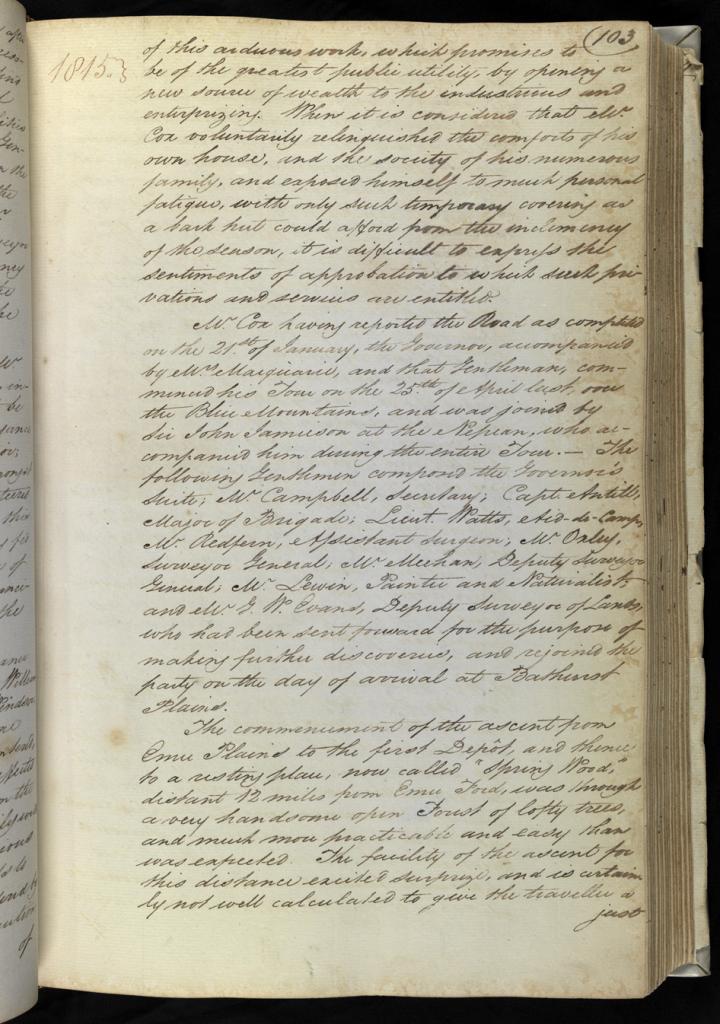 103
1815.
of this arduous work, which promises to
be of the greatest public utility, by opening a
new source of wealth to the industrious and
enterprizing. When it is considered that Mr.
Cox voluntarily relinquished the comforts of his
own house, and the society of his numerous
family, and exposed himself to much personal
fatigue, with only such temporary covering as
a bark hut could afford from the inclemency
of the season, it is difficult to express the
sentiments of approbation to which such pri-
vations and services are entitled.
Mr. Cox having reported the Road as completed
on the 21st. of January, the Governor, accompanied
by Mrs. Macquarie, and that Gentleman, com-
menced his Tour on the 25th. of April last, over
the Blue Mountains, and was joined by
Sir John Jamieson at the Nepean, who ac-
companied him during the entire Tour. — The
following Gentlemen composed the Governor's
Suite; Mr. Campbell, Secretary; Capt. Antill,
Major of Brigade; Lieut. Watts, Aid-de-Camp,
Mr. Redfern, Assistant Surgeon; Mr. Oxley,
Surveyor General; Mr. Meehan, Deputy Surveyor
General; Mr. Lewin, Painter and Naturalist;
and Mr. G. W. Evans, Deputy Surveyor of Lands,
who had been sent forward for the purpose of
making further discoveries, and rejoined the
party on the day of arrival at Bathurst
Plains.
The commencement of the ascent from
Emu Plains to the first Depôt, and thence
to a resting place, now called "Spring Wood,"
distant 12 miles from Emu Ford, was through
a very handsome open Forest of lofty trees,
and much more practicable and easy than
was expected. The facility of the ascent for
this distance excited surprize, and is certain-
ly not well calculated to give the traveller a
just